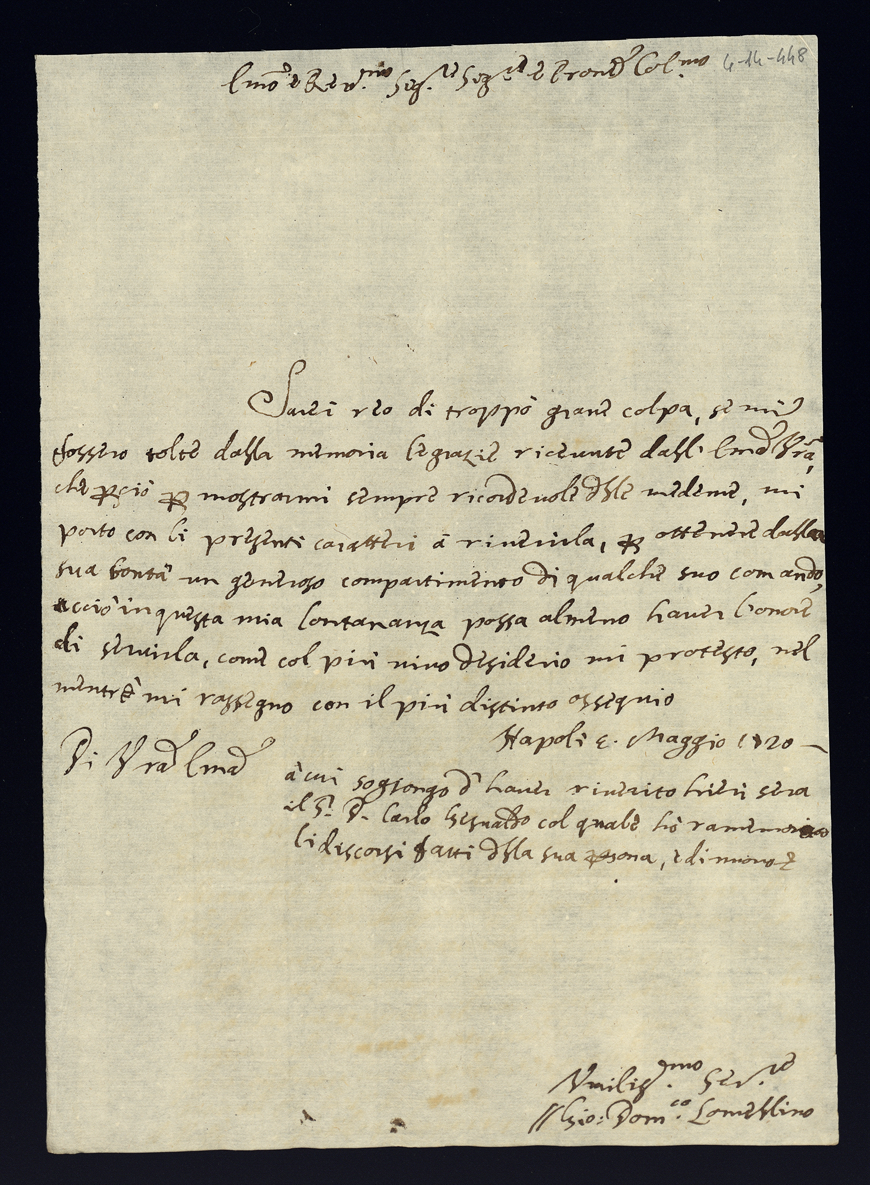 Em.o e Rev.mo Sig.re Sig.re e Pron.e Col.mo 4-14-448
Sarei reo di troppo grave colpa, se mi
fossero tolte dalla memoria le grazie riceuute dall' Em.a V.ra,
che perciò per mostrarmi sempre ricordevole delle medeme, mi
porto con li presenti caratteri à riuerirla, per ottenere dalla
sua bontà un generoso compartimento di qualche suo comando,
acciò in questa mia lontananza possa almeno hauer l'onore
di seruirla, come col più uiuo desiderio mi protesto, nel
mentre mi rassegno con il più distinto ossequio
Napoli Maggio 1720
Di V.ra Em.a
à cui sogiongo d'hauer riuerito hieri sera
il S.r D. Carlo Gesualdo col quale hò
li discorsi fatti della sua persona, e di nuouo
Vmilis.mo Ser.re
Gio: Dom.co Lomellino